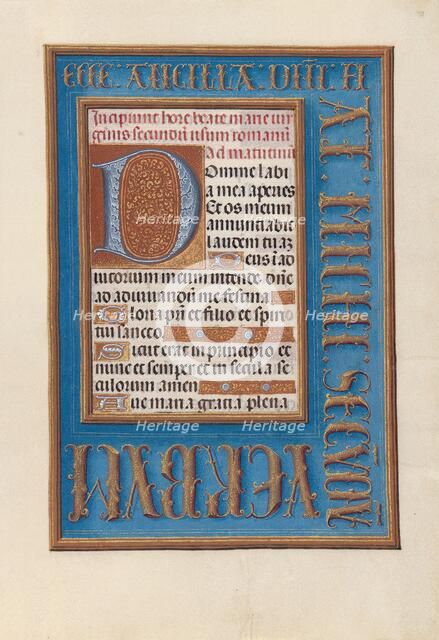 ECCE·ANCILLA·DNI·FI
AT·MICHI·SECVNDV
VERBVM
Incipiunt hore beate marie uir
ginis secundū usum romanū
Ad matutinū
Domine labi
a mea aperies
Et os meum
annunciabit
laudem tuaz
Deus in ad
iutorium meum intende dn̄e
ad adiuuandū me festina
Gloria pri et filio et spiri
tui sancto
Sicut erat in principio et
nunc et semper et in secula se
culorum amen
Aue maria gratia plena
Heritage
Heritage
Heritage
Heritage
Heritage
Heritage